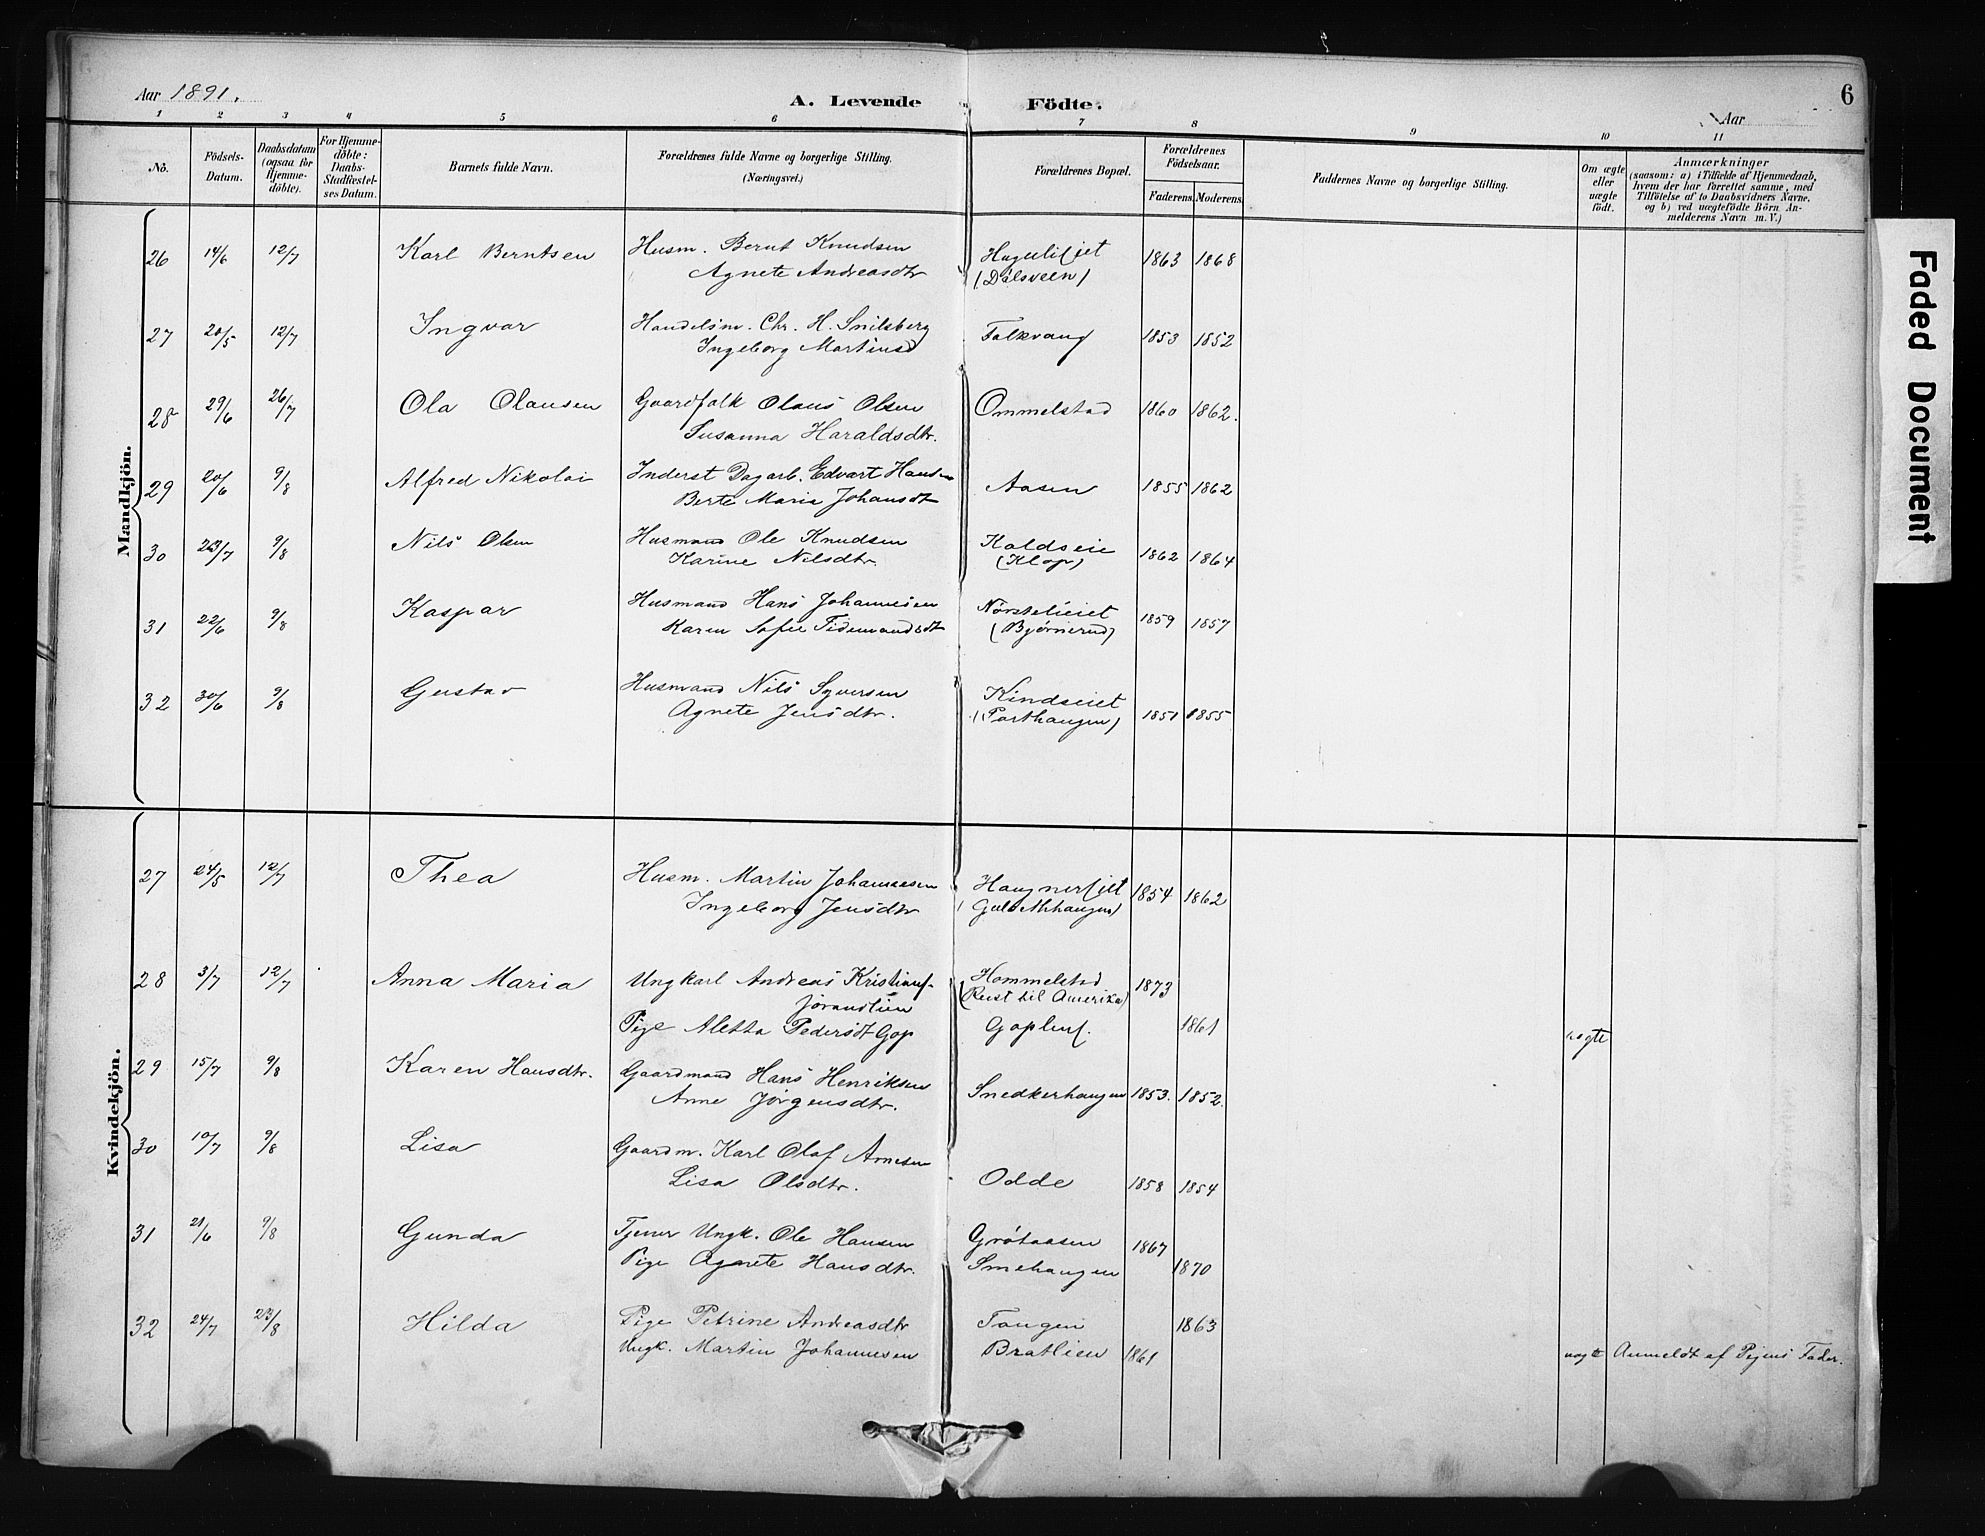 Aar 1891.
A. Levende Födte.
Aar
6
1 2 3 4 5 6 7 8 9 10 11
No.
Födsels-Datum.
Daabsdatum (ogsaa för Hjemme-döbte).
For Hjemme-döbte: Daabs-Stadfæstel-ses Datum.
Barnets fulde Navn.
Forældrenes fulde Navne og borgerlige Stilling.
(Næringsvei.)
Forældrenes Bopæl.
Forældrenes Födselsaar.
Faderens. Moderens.
Faddernes Navne og borgerlige Stilling.
Om ægte eller uægte födt.
Anmærkninger
(saasom: a) i Tilfælde af Hjemmedaab,
hvem der har forrettet samme, med
Tilföielse af to Daabsvidners Navne,
og b) ved uægtefödte Börn, An-
melderens Navn m. V.)
Mandkjön.
26 14/6 12/7 Karl Berntsen Husm. Bernt Knudsen 1863 1868
Agnete Andreasdtr (Dalsveen)
27 20/5 12/7 Ingvar Handelsm. Chr. H. Snilsberg Folkvang 1853 1852
Ingeborg Martinsd
28 29/6 26/7 Ola Olausen Gaardfolk Olaus Olsen Ommelstad 1860 1862.
Susanna Haraldsdtr.
29 20/6 9/8 Alfred Nikolai Inderst Dagarb. Edvart Hansen Aasen 1855 1862
Berte Maria Johansdt
30 23/7 9/8 Nils Olsen Husmand Ole Knudsen Koldseie 1862 1864
Karine Nilsdtr. (Klop)
31 22/6 9/8 Kaspar Husmand Hans Johannesen 1859 1857
Karen Sofie Tidemandsdt (Bjørnerud)
32 30/6 9/8 Gustav Husmand Nils Syversen Kindseiet 1851 1855
Agnete Jensdtr. (Porthaugen)
Kvindekjön.
27 24/5 12/7 Thea Husm. Martin Johannesen 1854 1862
Ingeborg Jensdtr
28 3/7 12/7 Anna Maria Ungkarl Andreas Kristians. Hommelstad 1873
Jörandlien (Reist til Amerika)
Pige Aletta Pedersdt Gop Goplens. 1861 uægte
29 15/7 9/8 Karen Hansdtr. Gaardmand Hans Henriksen Snedkerhaugen 1853. 1852.
Anne Jörgensdtr.
30 10/7 9/8 Lisa Gaardm. Karl Olaf Arnesen
Lisa Olsdtr. Odde 1858 1854
31 21/6 9/8 Gunda Tjener Ungk. Ole Hansen Grötaasen 1867
Pige Agnete Hansdtr. Smehaugen 1870
32 24/7 23/8 Hilda Pige Petrine Andreasdtr Tangen 1863
Ungk. Martin Johannesen Bratlien 1861 uægte Anmeldt af Pigens Fader.
Faded Document